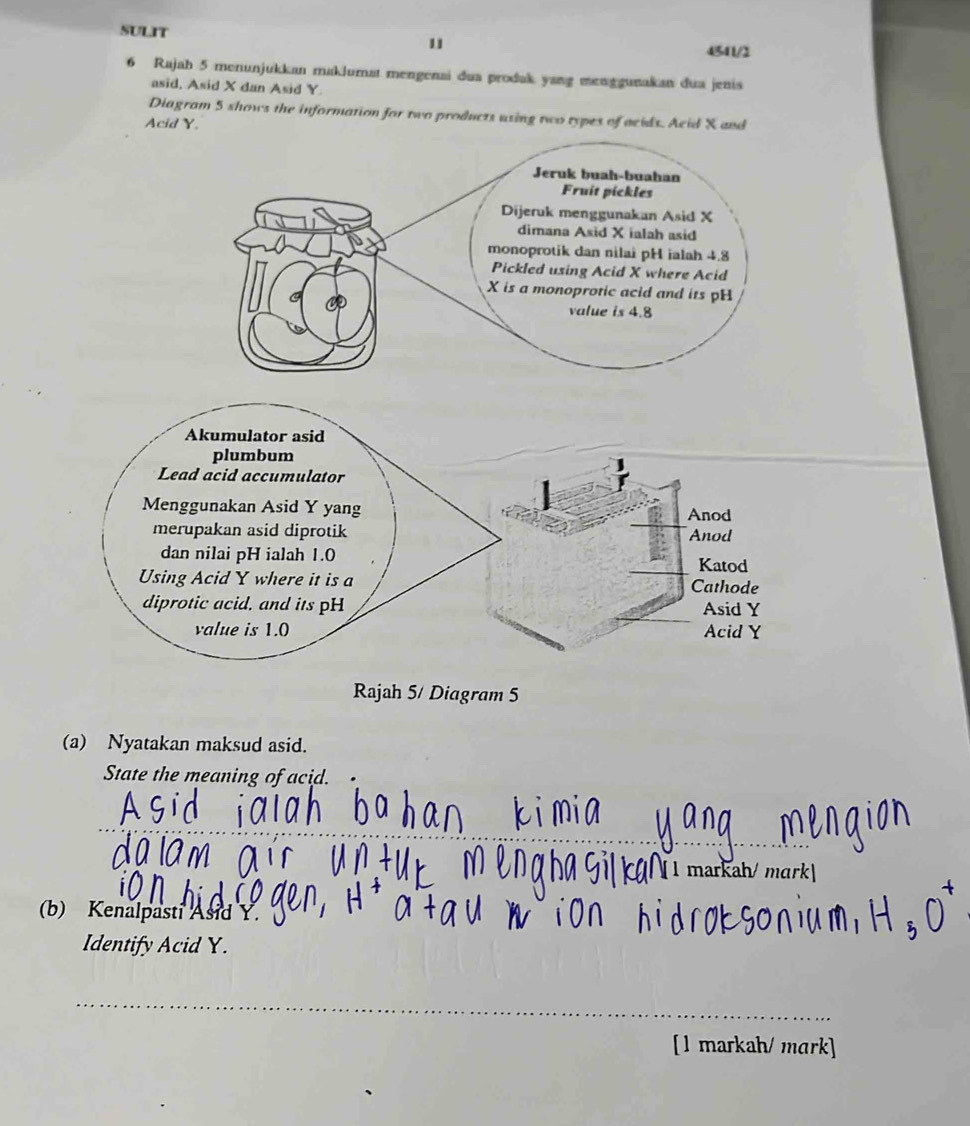 SULIT
11
4541/2
6 Rajah 5 menunjukkan maklumat mengenai dua produk yang menggunakan dua jenis
asid, Asid X dan Asid Y.
Diagram 5 shows the information for two products using two types of acids, Acid X and
Acid Y.
Jeruk buah-buahan
Fruit pickles
Dijeruk menggunakan Asid X
dimana Asid X ialah asid
monoprotik dan nilai pH ialah 4.8
Pickled using Acid X where Acid
X is a monoprotic acid and its pH
value is 4.8
Akumulator asid
plumbum
Lead acid accumulator
Menggunakan Asid Y yang
merupakan asid diprotik
dan nilai pH ialah 1.0
Using Acid Y where it is a
diprotic acid, and its pH
value is 1.0
Anod
Anod
Katod
Cathode
Asid Y
Acid Y
Rajah 5/ Diagram 5
(a) Nyatakan maksud asid.
State the meaning of acid.
Asid ialah bahan kimia yang mengion
dalam air untuk menghasilkan
[1 markah/ mark]
ion hidrogen, H⁺ atau ion hidroksonium, H₃O⁺
(b) Kenalpasti Asid Y.
Identify Acid Y.
[1 markah/ mark]